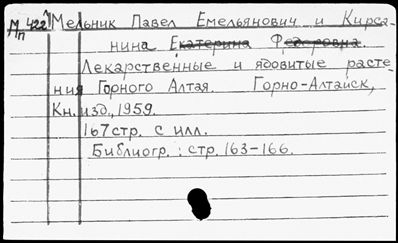 Мп 422 Мельник Павел Емельянович и Кирса-
нина Екатерина Федоровна.
Лекарственные и ядовитые расте-
ния Горного Алтая. Горно-Алтайск,
Кн. изд., 1959.
167 стр. с илл.
Библиогр.: стр. 163-166.